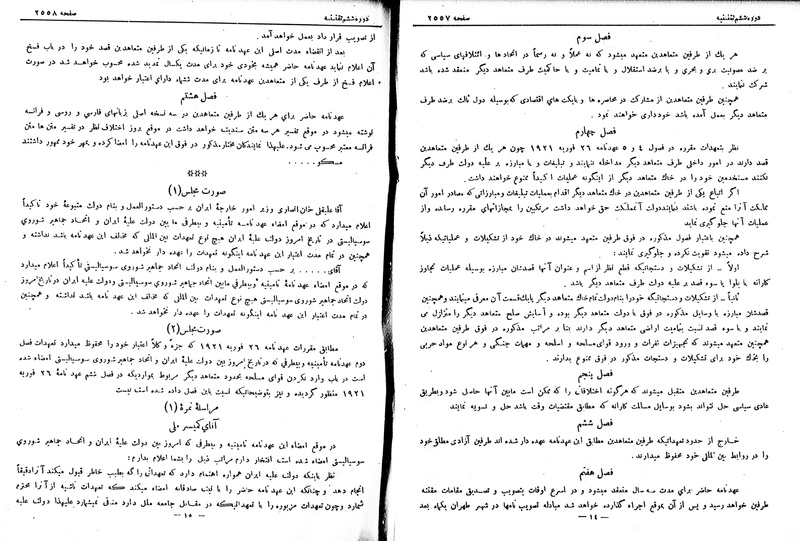 دوره ششم تقنینیه
صفحه ۲۵۵۷
فصل سوم
هر یك از طرفین متعاهدین متعهد میشود که نه عملاً و نه رسماً در اتحادها و ائتلافهای سیاسی که
بر ضد مصونیت بری و بحری و یا برضد استقلال و یا تمامیت و یا حاکمیت طرف متعاهد دیگر منعقد شده باشد
شرکت ننمایند.
همچنین طرفین متعاهدین از مشارکت در محاصره ها و بایکت های اقتصادی که بوسیله دول ثالث برضد طرف
متعاهد دیگر بعمل آمده باشد خودداری خواهند نمود.
فصل چهارم
نظر بتعهدات مقرره در فصول ٤ و ٥ عهدنامه ٢٦ فوریه ١٩٢١ چون هر یك از طرفین متعاهدین
قصد دارند در امور داخلی طرف متعاهد دیگر مداخله ننمایند و تبلیغات و یا مبارزه بر علیه دولت طرف دیگر
نکنند مستخدمین خود را در خاك متعاهد دیگر از اینگونه عملیات اکیداً ممنوع خواهند داشت.
اگر اتباع یکی از طرفین متعاهدین در خاك متعاهد دیگر اقدام بعملیات تبلیغات و مبارزاتی که مصادر امور آن
مملکت آنرا منع نموده باشند نمایند دولت آنمملکت حق خواهد داشت مرتکبین را بمجازاتهای مقرره رسانده و از
عملیات آنها جلوگیری نماید
همچنین باعتبار فصول مذکوره در فوق طرفین متعاهدین متعهد میشوند در خاك خود از تشکیلات و عملیاتیکه ذیلاً
شرح داده میشود تقویت نکرده و جلوگیری نمایند:
اولاً ـ از تشکیلات و دستجاتیکه قطع نظر از اسم و عنوان آنها قصدشان مبارزه بوسیله عملیات تجاوز
کارانه یا بلوا یا سوء قصد بر علیه دولت طرف متعاهد دیگر باشد.
ثانیاً ـ از تشکیلات و دستجاتیکه خود را بنام دولت تمام خاك متعاهد دیگر یا یك قسمت آن معرفی مینمایند و همچنین
قصدشان مبارزه با وسایل مذکوره در فوق با دولت متعاهد دیگر بوده و آسایش صلح متعاهد دیگر را متزلزل می
نمایند و یا سوء قصد نسبت بتمامیت اراضی متعاهد دیگر دارند بنا بر مراتب مذکوره در فوق طرفین متعاهدین
همچنین متعهد میشوند که تجهیزات نفرات و ورود قوای مسلحه و اسلحه و مهمات جنگی و هر نوع مواد حربی
را بخاك خود برای تشکیلات و دستجات مذکور در فوق ممنوع بدارند.
فصل پنجم
طرفین متعاهدین متقبل میشوند که هرگونه اختلافات را که ممکن است مابین آنها حاصل شود و بطریق
عادی سیاسی حل نتواند بشود بوسایل مسالمت کارانه که مطابق مقتضیات وقت باشد حل و تسویه نمایند
فصل ششم
خارج از حدود تعهداتیکه طرفین متعاهدین مطابق این عهدنامه عهده دار شده اند طرفین آزادی مطلق خود
را در روابط بین المللی خود محفوظ میدارند.
فصل هفتم
عهدنامه حاضر برای مدت سه سال منعقد میشود و در اسرع اوقات بتصویب و تصدیق مقامات مقننه
طرفین خواهد رسید و پس از آن بموقع اجراء گذارده خواهد شد مبادله تصویب نامها در شهر طهران یکماه بعد
ـ ١٤ ـ
دوره ششم تقنینیه
صفحه ۲۵۵۸
از تصویب قرار داد بعمل خواهد آمد.
بعد از انقضاء مدت اصلی این عهدنامه تا زمانیکه یکی از طرفین متعاهدین قصد خود را در باب فسخ
آن اعلام نماید عهدنامه حاضر همیشه بخودی خود برای مدت یکسال تمدید شده محسوب خواهد شد در صورت
اعلام فسخ از طرف یکی از متعاهدین عهدنامه برای مدت ششماه دارای اعتبار خواهد بود
فصل هشتم
عهدنامه حاضر برای هر یك از طرفین متعاهدین در سه نسخه اصلی بزبانهای فارسی و روسی و فرانسه
نوشته میشود در موقع تفسیر هر سه متن سندیت خواهد داشت در موقع بروز اختلاف نظر در تفسیر متن ها متن
فرانسه معتبر محسوب می شود. علیهذا نمایندگان مختار مذکور در فوق این عهدنامه را امضا کرده و بمهر خود ممهور داشتند
مسکو.....
***
صورت مجلس (١)
آقا علیقلی خان انصاری وزیر امور خارجه ایران بر حسب دستورالعمل و بنام دولت متبوعه خود تأکیداً
اعلام میدارد که در موقع امضاء عهدنامه تأمینیه و بیطرفی ما بین دولت علیه ایران و اتحاد جماهیر شوروی
سوسیالیستی در تاریخ امروز دولت علیه ایران هیچ نوع تعهدات بین المللی که مخالف این عهدنامه باشد نداشته و
همچنین در تمام مدت اعتبار این عهدنامه اینگونه تعهدات را عهده دار نخواهد شد.
آقای..... بر حسب دستورالعمل و بنام دولت اتحاد جماهیر شوروی سوسیالیستی تأکیداً اعلام میدارد
که در موقع امضای عهدنامه تأمینیه و بیطرفی مابین دولت اتحاد جماهیر شوروی سوسیالیستی و دولت علیه ایران در تاریخ امروز
دولت اتحاد جماهیر شوروی سوسیالیستی هیچ نوع تعهدات بین المللی که مخالف این عهدنامه باشد نداشته و همچنین
در تمام مدت اعتبار این عهدنامه اینگونه تعهدات را عهده دار نخواهد شد.
صورت مجلس (٢)
مطابق مقررات عهدنامه ٢٦ فوریه ١٩٢١ که جزءً و کلاً اعتبار خود را محفوظ میدارد مقررات فصل
دوم عهدنامه تأمینیه و بیطرفی که در تاریخ امروز بین دولت علیه ایران و اتحاد جماهیر شوروی سوسیالیستی امضاء شده
است در باب وارد نکردن قوای مسلحه بحدود متعاهد دیگر مربوط بمواردیکه در فصل ششم عهد نامه ٢٦ فوریه
١٩٢١ منظور گردیده و نیز بتوضیحاتیکه نسبت باین فصل داده شده است نیست
مراسله نمره (١)
آقای کمیسر ملی
در موقع امضاء این عهدنامه تأمینیه و بیطرفی که امروز بین دولت علیه ایران و اتحاد جماهیر شوروی
سوسیالیستی امضاء شده است افتخار دارم مراتب ذیل را بشما اعلام بدارم:
نظر باینکه دولت علیه ایران همواره اهتمام دارد که تعهداتی را که بطیب خاطر قبول میکند آنرا دقیقاً
انجام دهد و چنانکه این عهدنامه حاضر را با نیت صادقانه امضاء میکند که تعهدات ناشیه از آنرا محترم
شمارد و چون تعهدات مزبوره را با تعهداتیکه در مقابل جامعه ملل دارد منافی نمیشمارد علیهذا دولت علیه
ـ ١٥ ـ